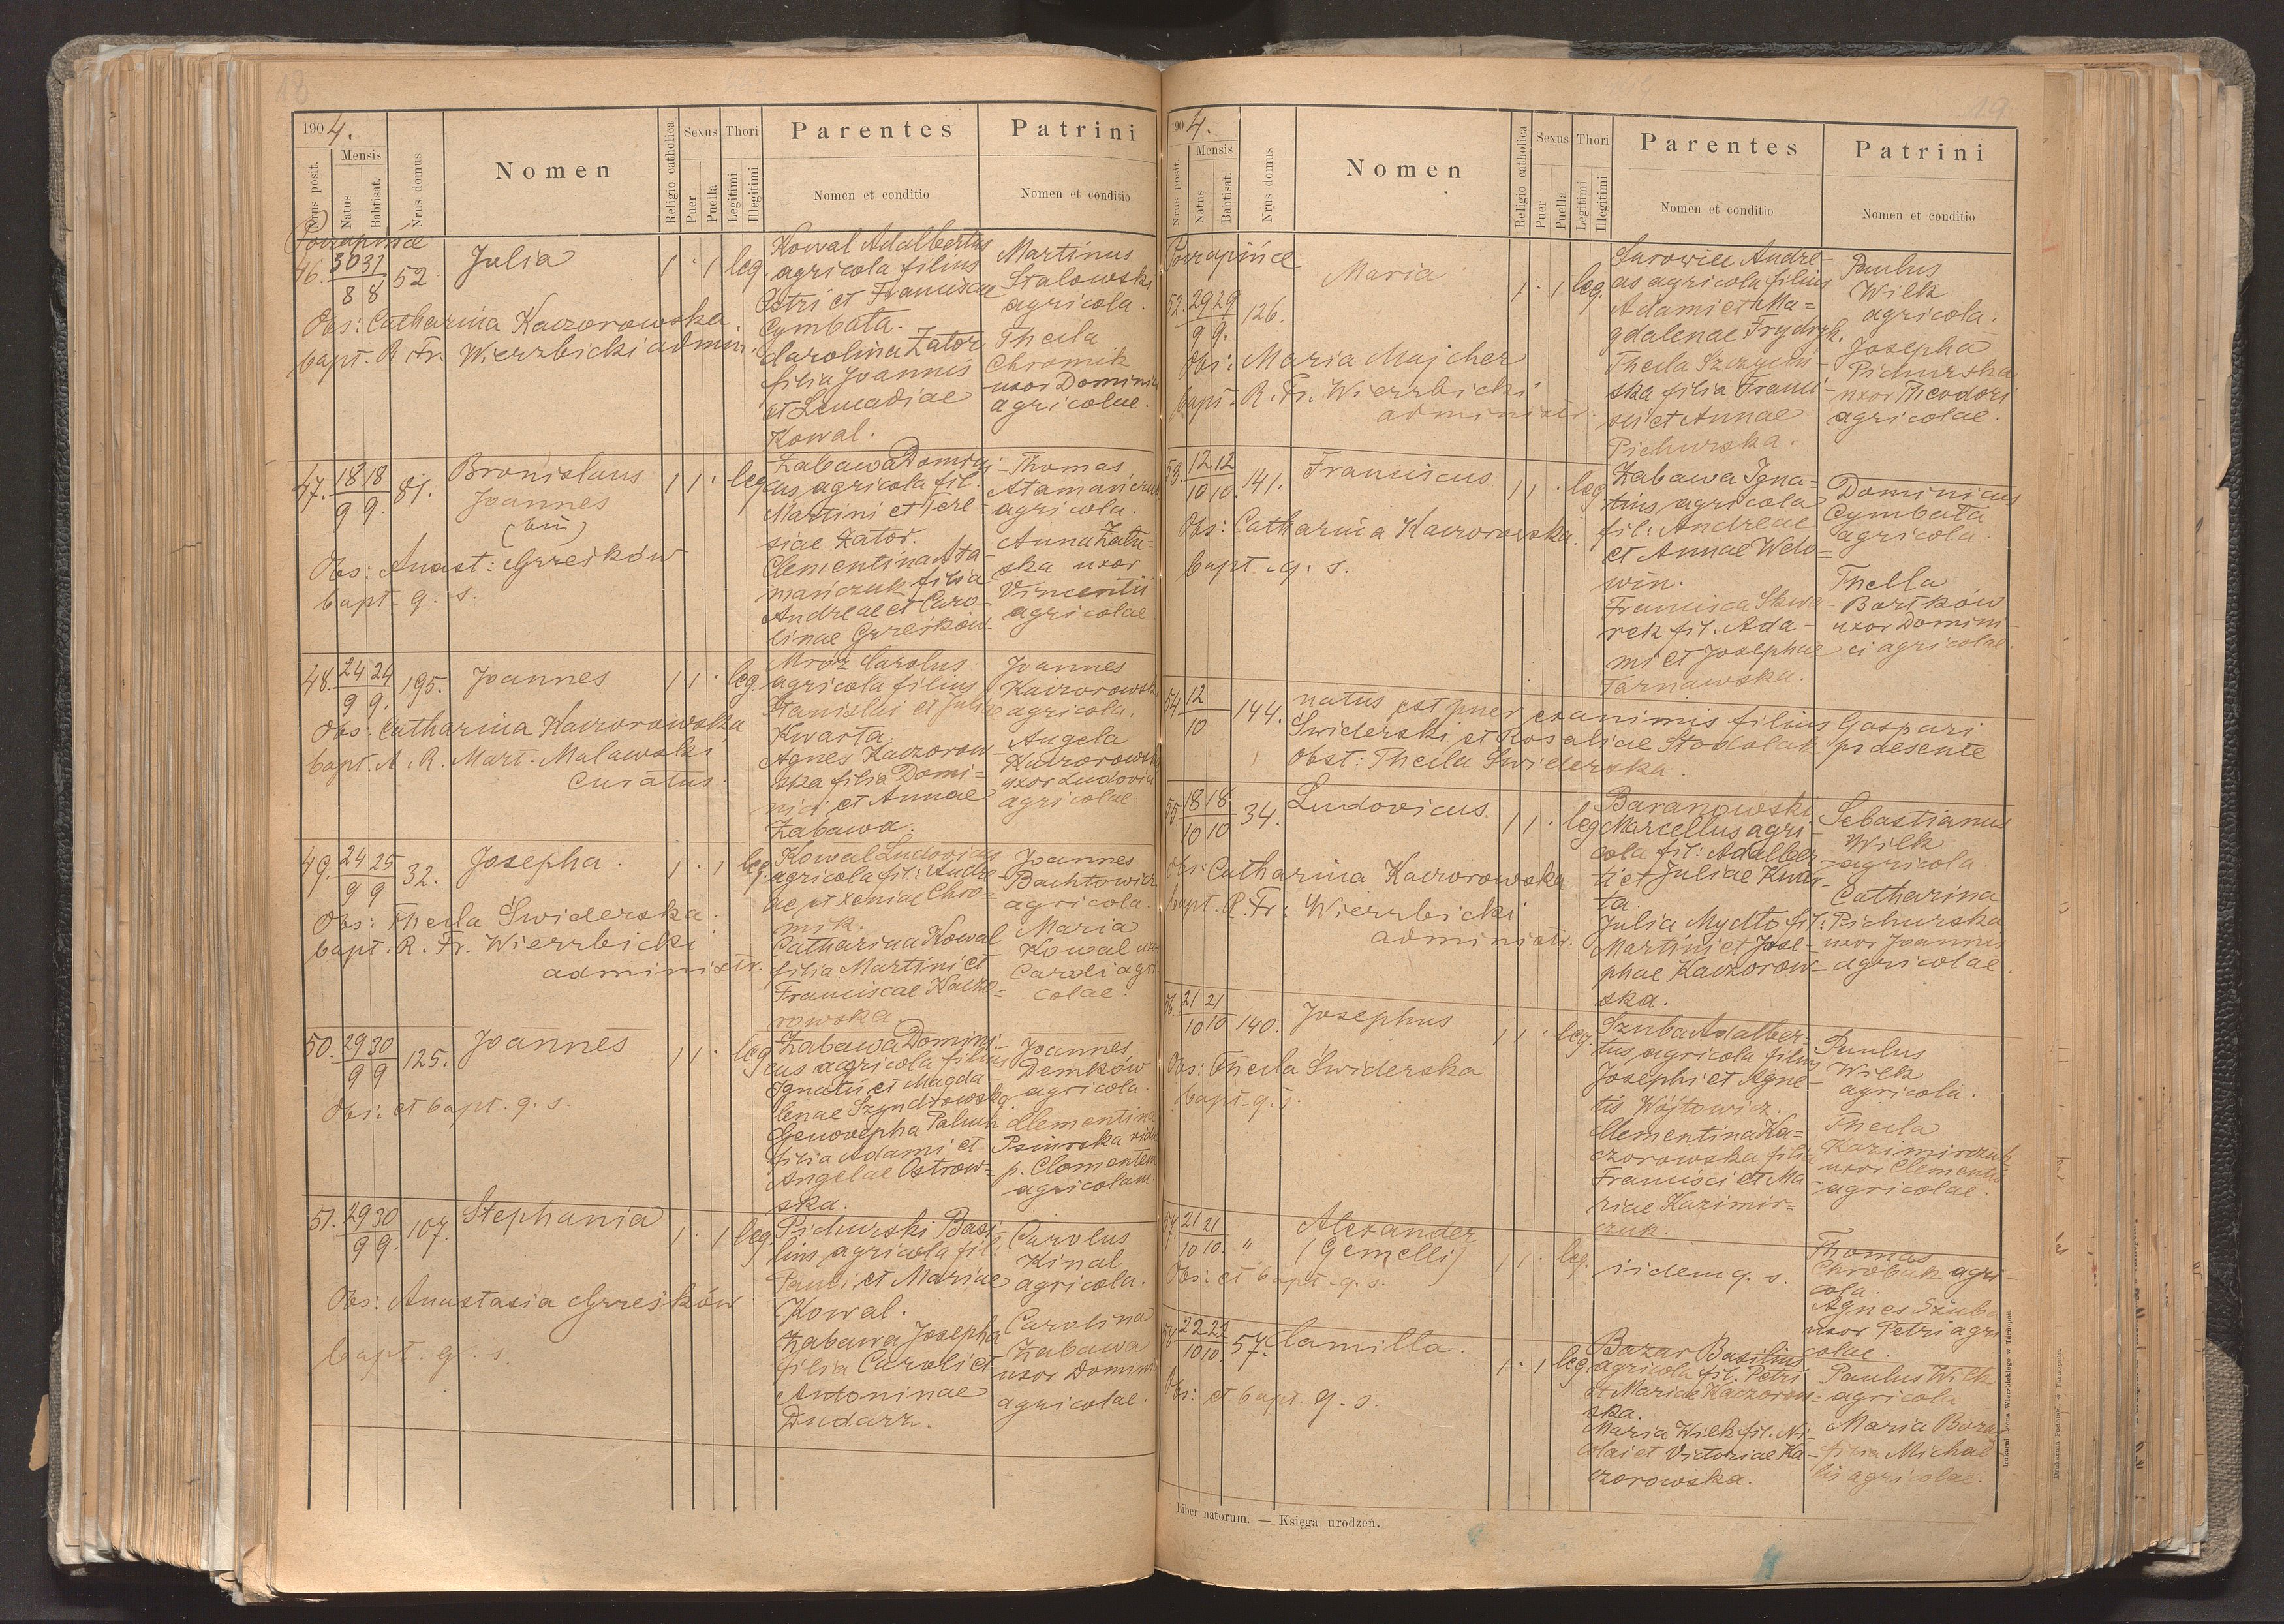 18
1904.
Nrus posit.
Mensis
Natus
Babtisat.
Nrus domus
Nomen
Religio catholica
Sexus
Puer
Puella
Thori
Legitimi
Illegitimi
Parentes
Nomen et conditio
Patrini
Nomen et conditio
46. 30 31 52. Julia 1 · 1 leg.
8 8
Obs: Catharina Kaczorowska.
bapt. R. Fr. Wierzbicki admin.
Kowal Adalbertus
agricola filius
Petri et Franciscae
Cymbała.
Carolina Zator
filia Joannis
et Leucadiae
Kowal.
Martinus
Stalowski
agricola.
Thecla
Chromik
uxor Dominici
agricolae.
47. 18 18 81. Bronislaus 1 1 · leg.
9 9. Joannes
(bin)
Obs: Anast: Grześków
bapt. q. s.
Zabawa Domini-
cus agricola fil.
Martini et Tere-
siae Zator.
Clementina Ata-
mańczuk filia
Andreae et Caro-
linae Grześków.
Thomas
Atamańczuk
agricola.
Anna Zału-
ska uxor
Vincentii
agricolae
48. 24 24 195. Joannes 1 1 · leg.
9 9.
Obs: Catharina Kaczorowska
bapt. A. R. Mart. Malawski
Curatus.
Mróz Carolus
agricola filius
Stanislai et Juliae
Kwarta.
Agnes Kaczorow-
ska filia Domi-
nici et Annae
Zabawa.
Joannes
Kaczorowski
agricola.
Angela
Kaczorowska
uxor Ludovici
agricolae.
49. 24 25 32. Josepha. 1 · 1 leg.
9 9
Obs: Thecla Świderska.
bapt. R. Fr. Wierzbicki
administr.
Kowal Ludovicus
agricola fil: Andre-
ae et Xeniae Chro-
mik.
Catharina Kowal
filia Martini et
Franciscae Kaczo-
rowska
Joannes
Bachtowicz
agricola.
Maria
Kowal uxor
Caroli agri
colae.
50. 29 30 125. Joannes 1 1 · leg.
9 9
Obs: et bapt. q. s.
Zabawa Domini-
cus agricola filius
Ignatii et Magda-
lenae Szyndrowska.
Genovepha Paluch
filia Adami et
Angelae Ostrow-
ska.
Joannes
Demków
agricola
Clementina
Psiurska vidua
p. Clementem
agricolam.
51. 29 30 107. Stephania 1 · 1 leg.
9 9.
Obs: Anastasia Grześków
bapt. q. s.
Pichurski Basi-
lius agricola fil:
Pauli et Mariae
Kowal.
Zabawa Josepha
filia Caroli et
Antoninae
Dudarz.
Carolus
Kinal
agricola.
Carolina
Zabawa
uxor Dominici
agricolae.
19
1904.
Nrus posit.
Mensis
Natus
Babtisat.
Nrus domus
Nomen
Religio catholica
Sexus
Puer
Puella
Thori
Legitimi
Illegitimi
Parentes
Nomen et conditio
Patrini
Nomen et conditio
52. 29 29 126. Maria 1 · 1 leg.
9 9.
Obs: Maria Majcher
bapt. R. Fr. Wierzbicki
administr.
Surowiec Andre-
as agricola filius
Adami et Ma-
gdalenae Frydryk.
ska filia Franci-
sci et Annae
Pichurska.
Paulus
Wilk
agricola.
Josepha
Pichurska
uxor Theodori
agricolae.
53. 12 12 141. Franciscus 1 1 · leg.
10 10.
Obs: Catharina Kaczorowska.
bapt. q. s.
Zabawa Igna-
tius agricola
fil: Andreae
et Annae Wdo-
win.
Francisca Skwa-
rek fil. Ada-
mi et Josephae
Tarnawska.
Dominicus
Cymbała
agricola.
Thecla
Bortków
uxor Domini-
ci agricolae.
54. 12 144. natus est puer exanimis filius Gaspari
10 Świderski et Rosaliae Stodolak praesente
Obst: Thecla Świderska.
55. 18 18 34. Ludovicus. 1 1 · leg.
10 10
Obs: Catharina Kaczorowska
bapt. R. Fr. Wierzbicki
administr.
Baranowski
Marcellus agri-
cola fil: Adalber-
ti et Juliae Kwar-
ta.
Julia Mydło fil:
Martini et Jose-
phae Kaczorow-
ska.
Sebastianus
Wilk
agricola.
Catharina
Pichurska
uxor Joannis
agricolae.
56. 21 21 140. Josephus 1 1 · leg.
10 10
Obs: Thecla Świderska
bapt. q. s.
Szuba Adalber-
tus agricola filius
Josephi et Agne-
tis Wójtowicz.
Clementina Ka-
czorowska filia
Francisci et Ma-
riae Kazimir-
czuk.
Paulus
Wilk
agricola.
Thecla
Kazimirczuk
uxor Clementis
agricolae.
57. 21 21 " Alexander 1 1 · leg.
10 10. (Gemelli)
Obs: et bapt. q. s.
iidem q. s.
Thomas
Chrobak agri-
cola.
Agnes Szuba
uxor Petri agri
colae.
58. 22 22 57. Camilla. 1 · 1 leg.
10 10.
Obs: et bapt. q. s.
Bazar Basilius
agricola fil. Petri
et Mariae Kaczorow-
ska.
Maria Wilk fil. Ni-
colai et Victoriae Ka-
czorowska.
Paulus Wilk
agricola
Maria Bazar
filia Michae-
lis agricolae.
Liber natorum. — Księga urodzeń.